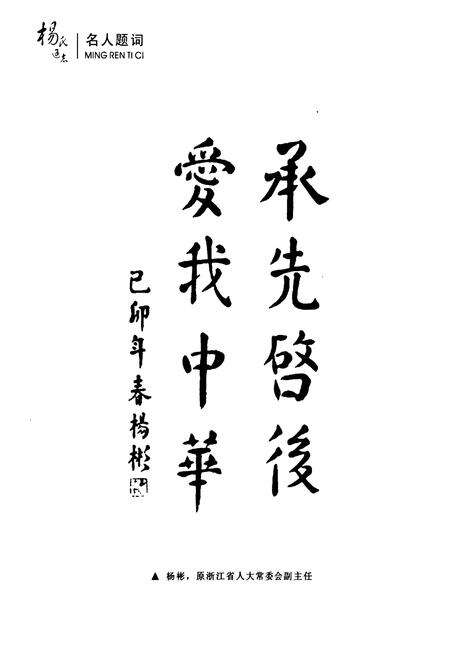 杨氏通志
名人题词
MING REN TI CI
承先啓後
愛我中華
己卯年春楊彬
▲ 杨彬，原浙江省人大常委会副主任